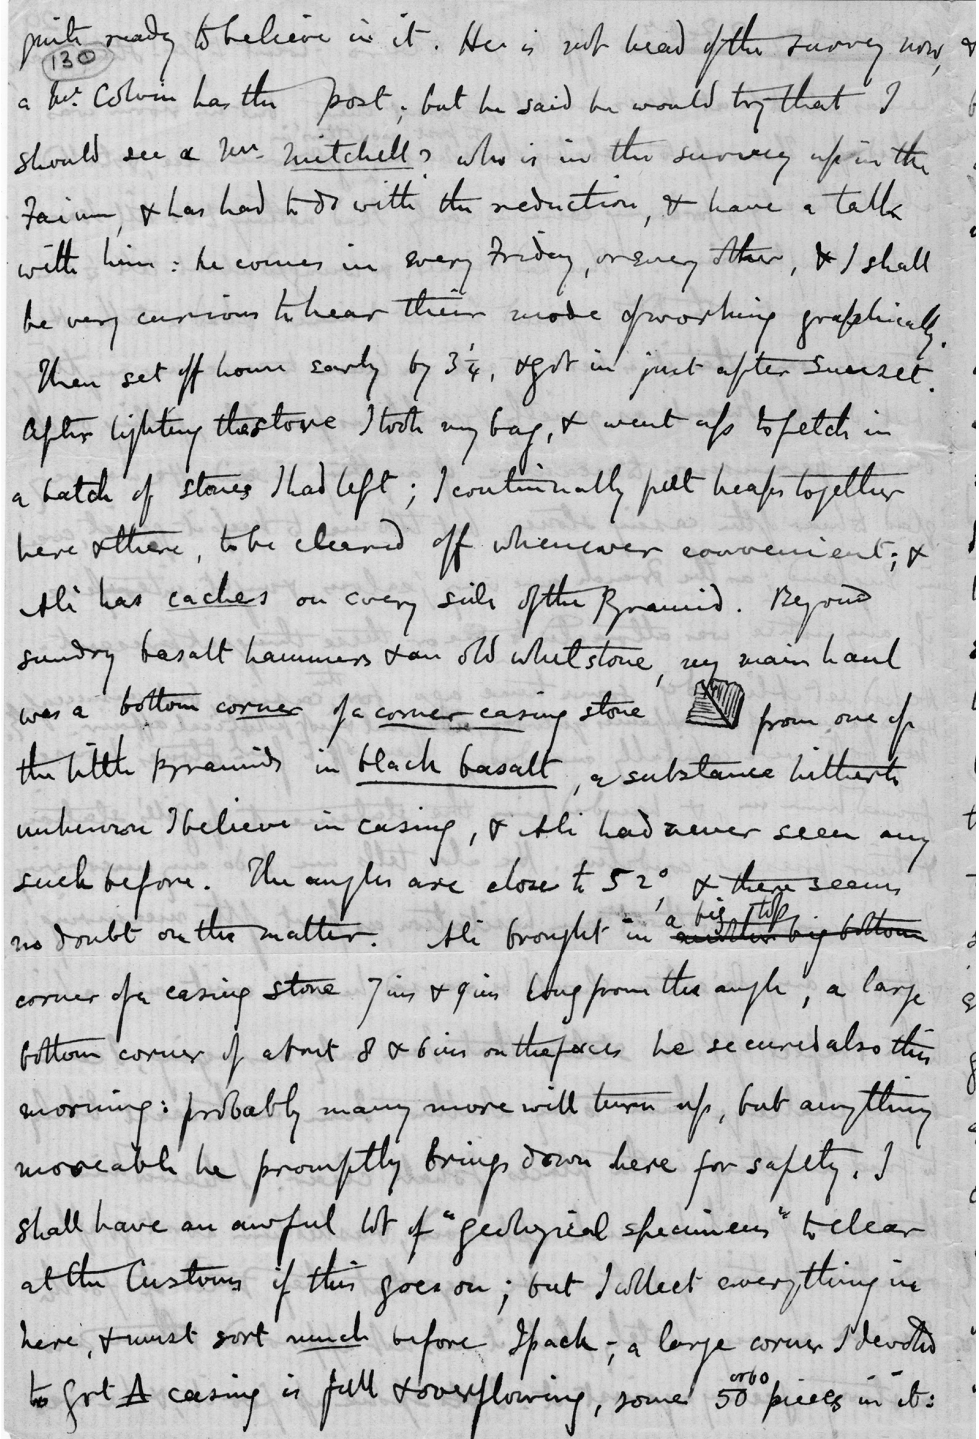 quite ready to believe in it. He is not head of the survey now,
130
a Mr. Colvin has the post; but he said he would try that I
should see a Mr. Mitchell? who is in the survey up in the
Faium, & has had to do with the reduction, & have a talk
with him: he comes in every Friday, or every other, & I shall
be very curious to hear their mode of working graphically.
Then set off home early by 3¼, & got in just after sunset.
After lighting the stove I took my bag, & went up to fetch in
a batch of stones I had left; I continually put heaps together
here & there, to be cleared off whenever convenient; &
Ali has caches on every side of the Pyramid. Beyond
sundry basalt hammers & an old whetstone, my main haul
was a bottom corner of a corner casing stone from one of
the little Pyramids in black basalt, a substance hitherto
unknown I believe in casing, & Ali had never seen any
such before. The angles are close to 52°, & there seems
no doubt on the matter. Ali brought in a big top another big bottom
corner of a casing stone 7 ins & 9 ins long from the angle, a large
bottom corner of about 8 & 6 ins on the faces he secured also this
morning: probably many more will turn up, but anything
moveable he promptly brings down here for safety. I
shall have an awful lot of "geological specimens" to clear
at the Customs if this goes on; but I collect everything in
here, & must sort much before I pack; a large corner I devoted
to Grt Δ casing is full & overflowing, some 50 or 60 pieces in it: